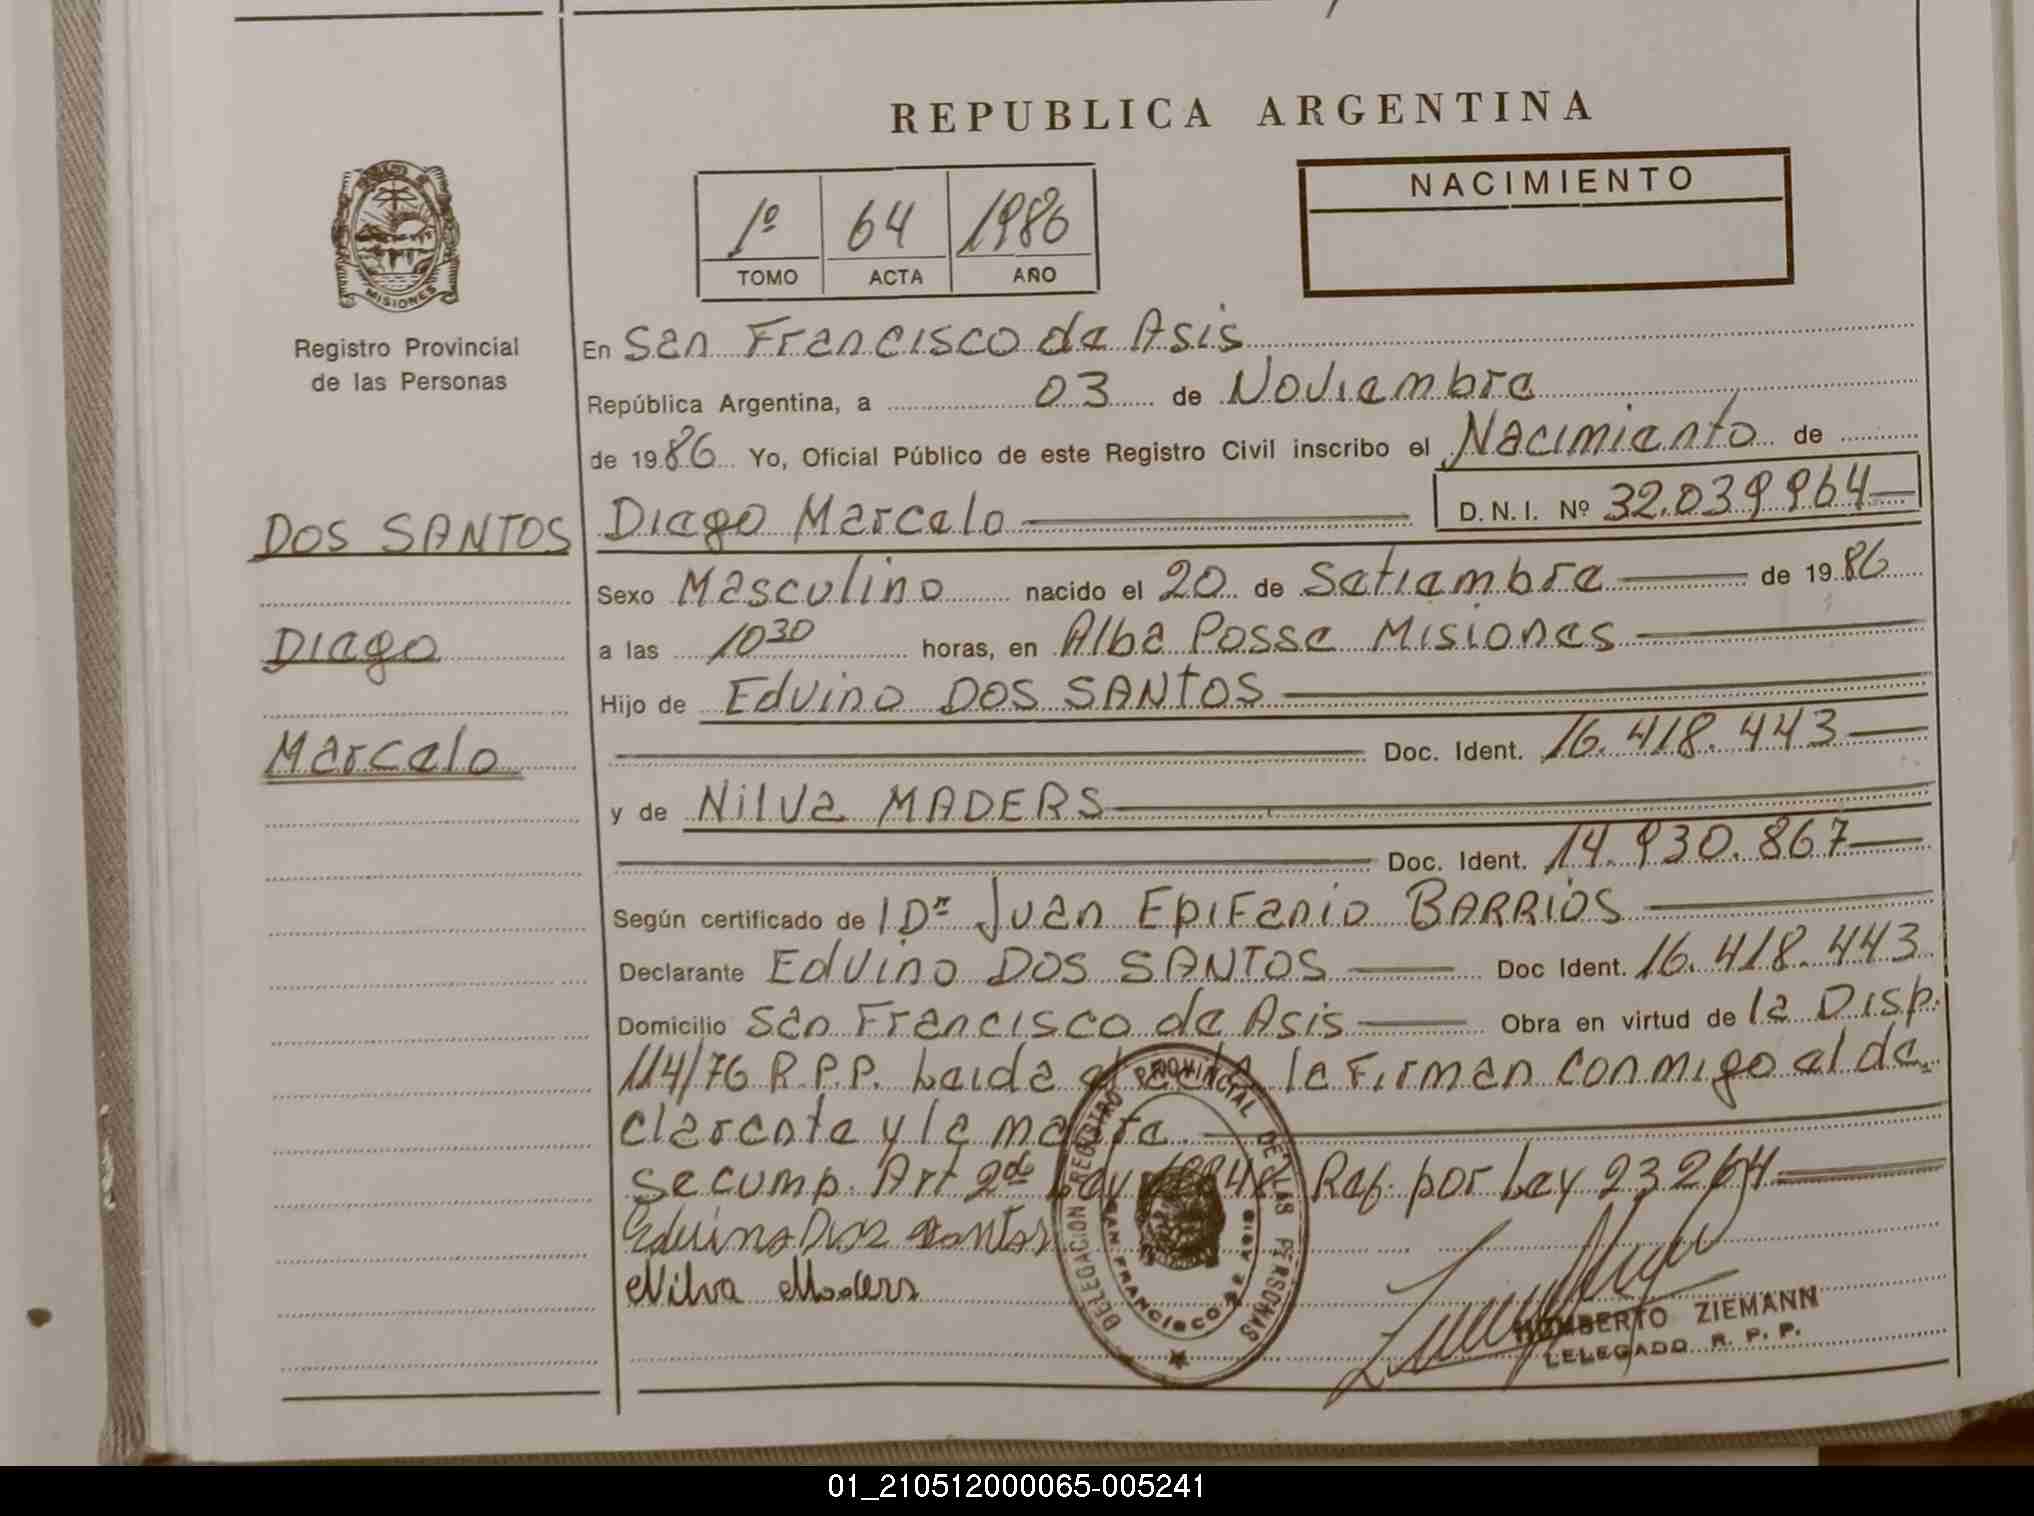 REPUBLICA ARGENTINA
MISIONES
Registro Provincial
de las Personas
1º 64 1986
TOMO ACTA AÑO
NACIMIENTO
En San Francisco de Asis
República Argentina, a 03 de Noviembre
de 1986 Yo, Oficial Público de este Registro Civil inscribo el Nacimiento de
DOS SANTOS
Diego
Marcelo
Diego Marcelo D.N.I. Nº 32.039.964
Sexo Masculino nacido el 20 de Setiembre de 1986
a las 10 30 horas, en Alba Posse Misiones
Hijo de Edvino DOS SANTOS
Doc. Ident. 16.418.443
y de Nilva MADERS
Doc. Ident. 14.930.867
Según certificado de 1 Dr Juan Epifanio BARRIOS
Declarante Edvino DOS SANTOS Doc Ident. 16.418.443
Domicilio San Francisco de Asis Obra en virtud de la Disp.
114/76 R.P.P. Leida el acta la Firman conmigo el de
clarante y la madre.
Se cump. Art 2do Ley Ref. por Ley 23264
Edvino Dos Santos
Nilva Maders
DELEGACION REGISTRO PROVINCIAL DE LAS PERSONAS
SAN FRANCISCO DE ASIS
HUMBERTO ZIEMANN
DELEGADO R. P. P.
01_210512000065-005241